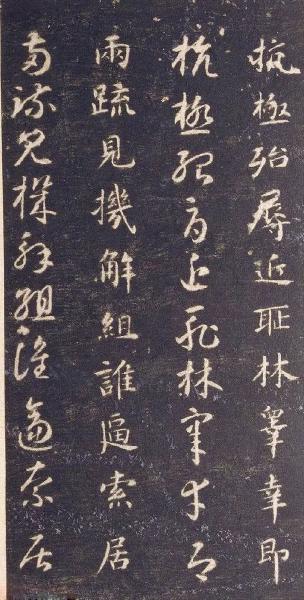 抗極殆辱近耻林睾幸即
抗極殆辱近耻林睾幸即
兩疏見機解組誰逼索居
兩疏見機解組誰逼索居